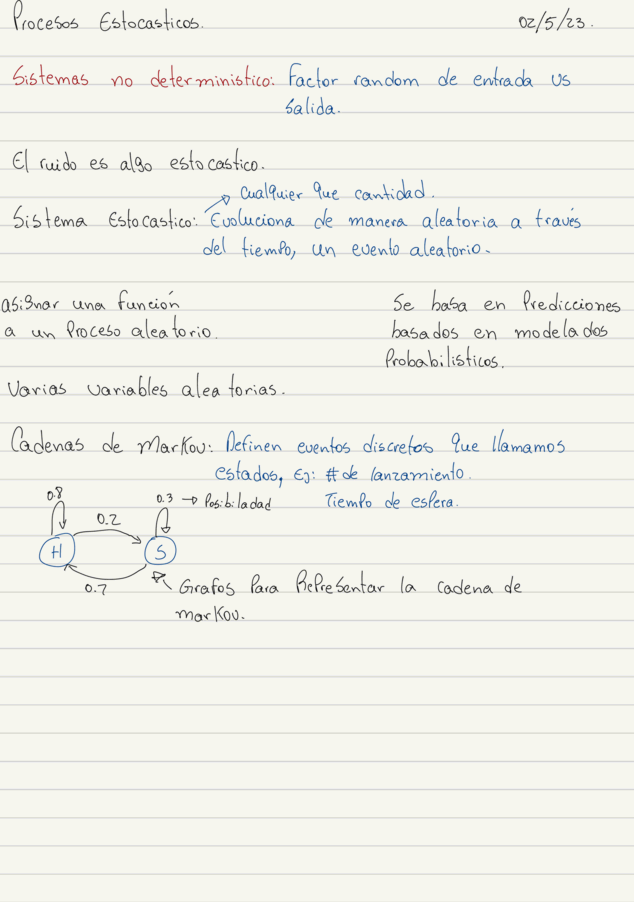 Procesos Estocasticos. 02/5/23.
Sistemas no deterministico: Factor random de entrada vs
salida.
El ruido es algo estocastico.
Cualquier que cantidad.
Sistema Estocastico: Evoluciona de manera aleatoria a través
del tiempo, un evento aleatorio.
asignar una función
a un Proceso aleatorio.
Se basa en Predicciones
basados en modelados
Probabilisticos.
Varias variables aleatorias.
Cadenas de Markov: Definen eventos discretos que llamamos
estados, Ej: # de lanzamiento.
Tiempo de espera.
0.8
0.3 → Posibiladad
0.2
H S
0.7
Grafos Para Representar la cadena de
markov.